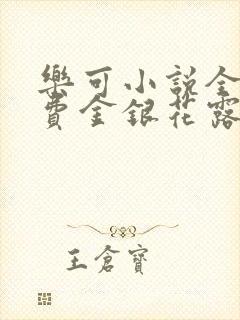 樂可小說全
費金銀花露
王倉寶